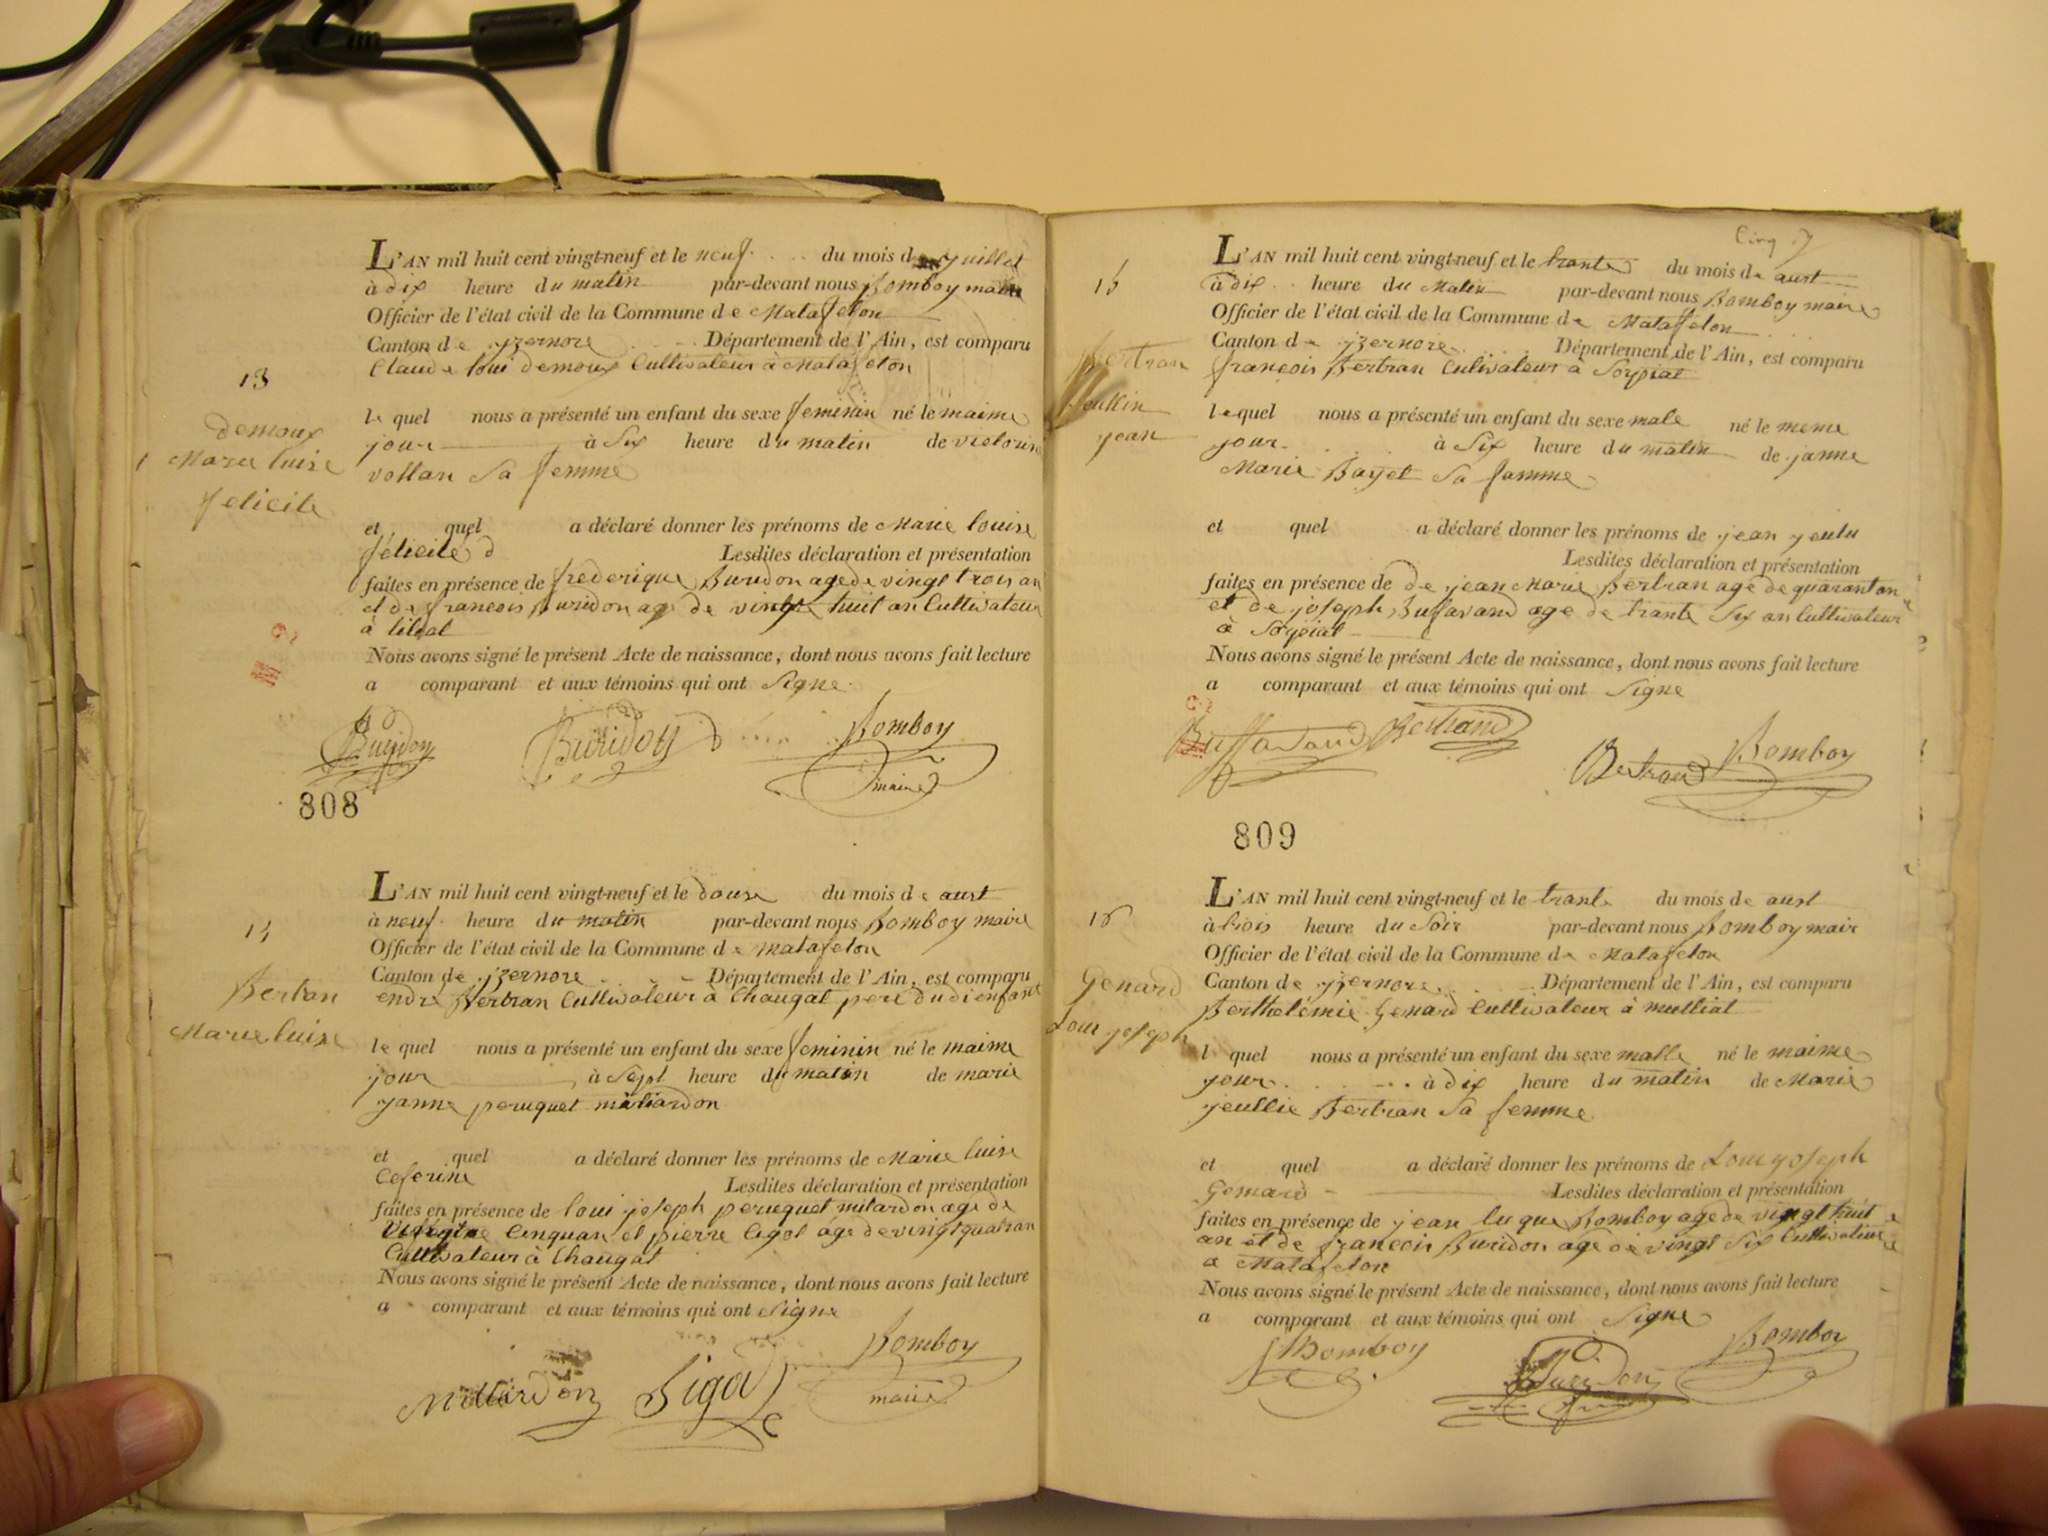 L'AN mil huit cent vingt-neuf et le neuf du mois de juillet
à dix heure du matin par-devant nous Bomboy maire
Officier de l'état civil de la Commune de Matafelon
Canton de yzernore Département de l'Ain, est comparu
Claude loui demoux Cultivateur à Matafelon
13
demoux
Marie luise
felicite
le quel nous a présenté un enfant du sexe feminin né le maime
jour à Six heure du matin de
vollan Sa femme
et quel a déclaré donner les prénoms de Marie louise
félicité d Lesdites déclaration et présentation
faites en présence de frederique Buridon age de vingt trois an
et de francois Buridon age de vingt huit an Cultivateur
à
Nous avons signé le présent Acte de naissance, dont nous avons fait lecture
a comparant et aux témoins qui ont Signe
Buridon Buridon Bomboy
maire
808
L'AN mil huit cent vingt-neuf et le douse du mois de aust
à neuf heure du matin par-devant nous Bomboy maire
14
Officier de l'état civil de la Commune de matafelon
Canton de yzernore Département de l'Ain, est comparu
endre Bertran Cultivateur à Chaugat pere du di enfant
Bertran
Marie luise
le quel nous a présenté un enfant du sexe feminin né le maime
jour à Sept heure du matin de marie
janne peruquet miliardon
et quel a déclaré donner les prénoms de Marie luise
Ceferine Lesdites déclaration et présentation
faites en présence de loui joseph peruquet milardon age de
Cinquan et pierre Cigot age de vingt quatran
Cultivateur à Chaugat
Nous avons signé le présent Acte de naissance, dont nous avons fait lecture
a comparant et aux témoins qui ont Signe
Millardon Sigod Bomboy
maire
Cinq
L'AN mil huit cent vingt-neuf et le trante du mois de aust
15
à dix heure du Matin par-devant nous Bomboy maire
Officier de l'état civil de la Commune de Matafelon
Canton de yzernore Département de l'Ain, est comparu
francois Bertran Cultivateur à Corpiat
Bertran
jeullin
jean
le quel nous a présenté un enfant du sexe male né le meme
jour à Six heure du matin de janne
Marie Bayet Sa famme
et quel a déclaré donner les prénoms de jean
Lesdites déclaration et présentation
faites en présence de de jean Marie Bertran age de quarant an
et de joseph Bufavand age de trante Six an Cultivateur
à Corpiat
Nous avons signé le présent Acte de naissance, dont nous avons fait lecture
a comparant et aux témoins qui ont Signe
Buffavand Bertrand
Bertrand Bomboy
809
L'AN mil huit cent vingt-neuf et le trante du mois de aust
16
à trois heure du Soir par-devant nous Bomboy maire
Officier de l'état civil de la Commune de Matafelon
Canton de yzernore Département de l'Ain, est comparu
Berthelémie Genard Cultivateur à mulliat
Genard
Loui joseph
l quel nous a présenté un enfant du sexe malle né le maime
jour à dix heure du matin de Marie
jeullie Bertran Sa femme
et quel a déclaré donner les prénoms de Loui joseph
Genard Lesdites déclaration et présentation
faites en présence de jean luque Bomboy age de vingt huit
an et de francois Buridon age de vingt Six Cultivateur
a Matafelon
Nous avons signé le présent Acte de naissance, dont nous avons fait lecture
a comparant et aux témoins qui ont Signe
Bomboy Buridon Bomboy